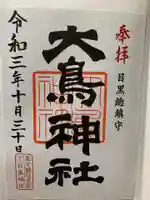 奉拝
目黒総鎮守
大鳥神社
令和三年十月三十日